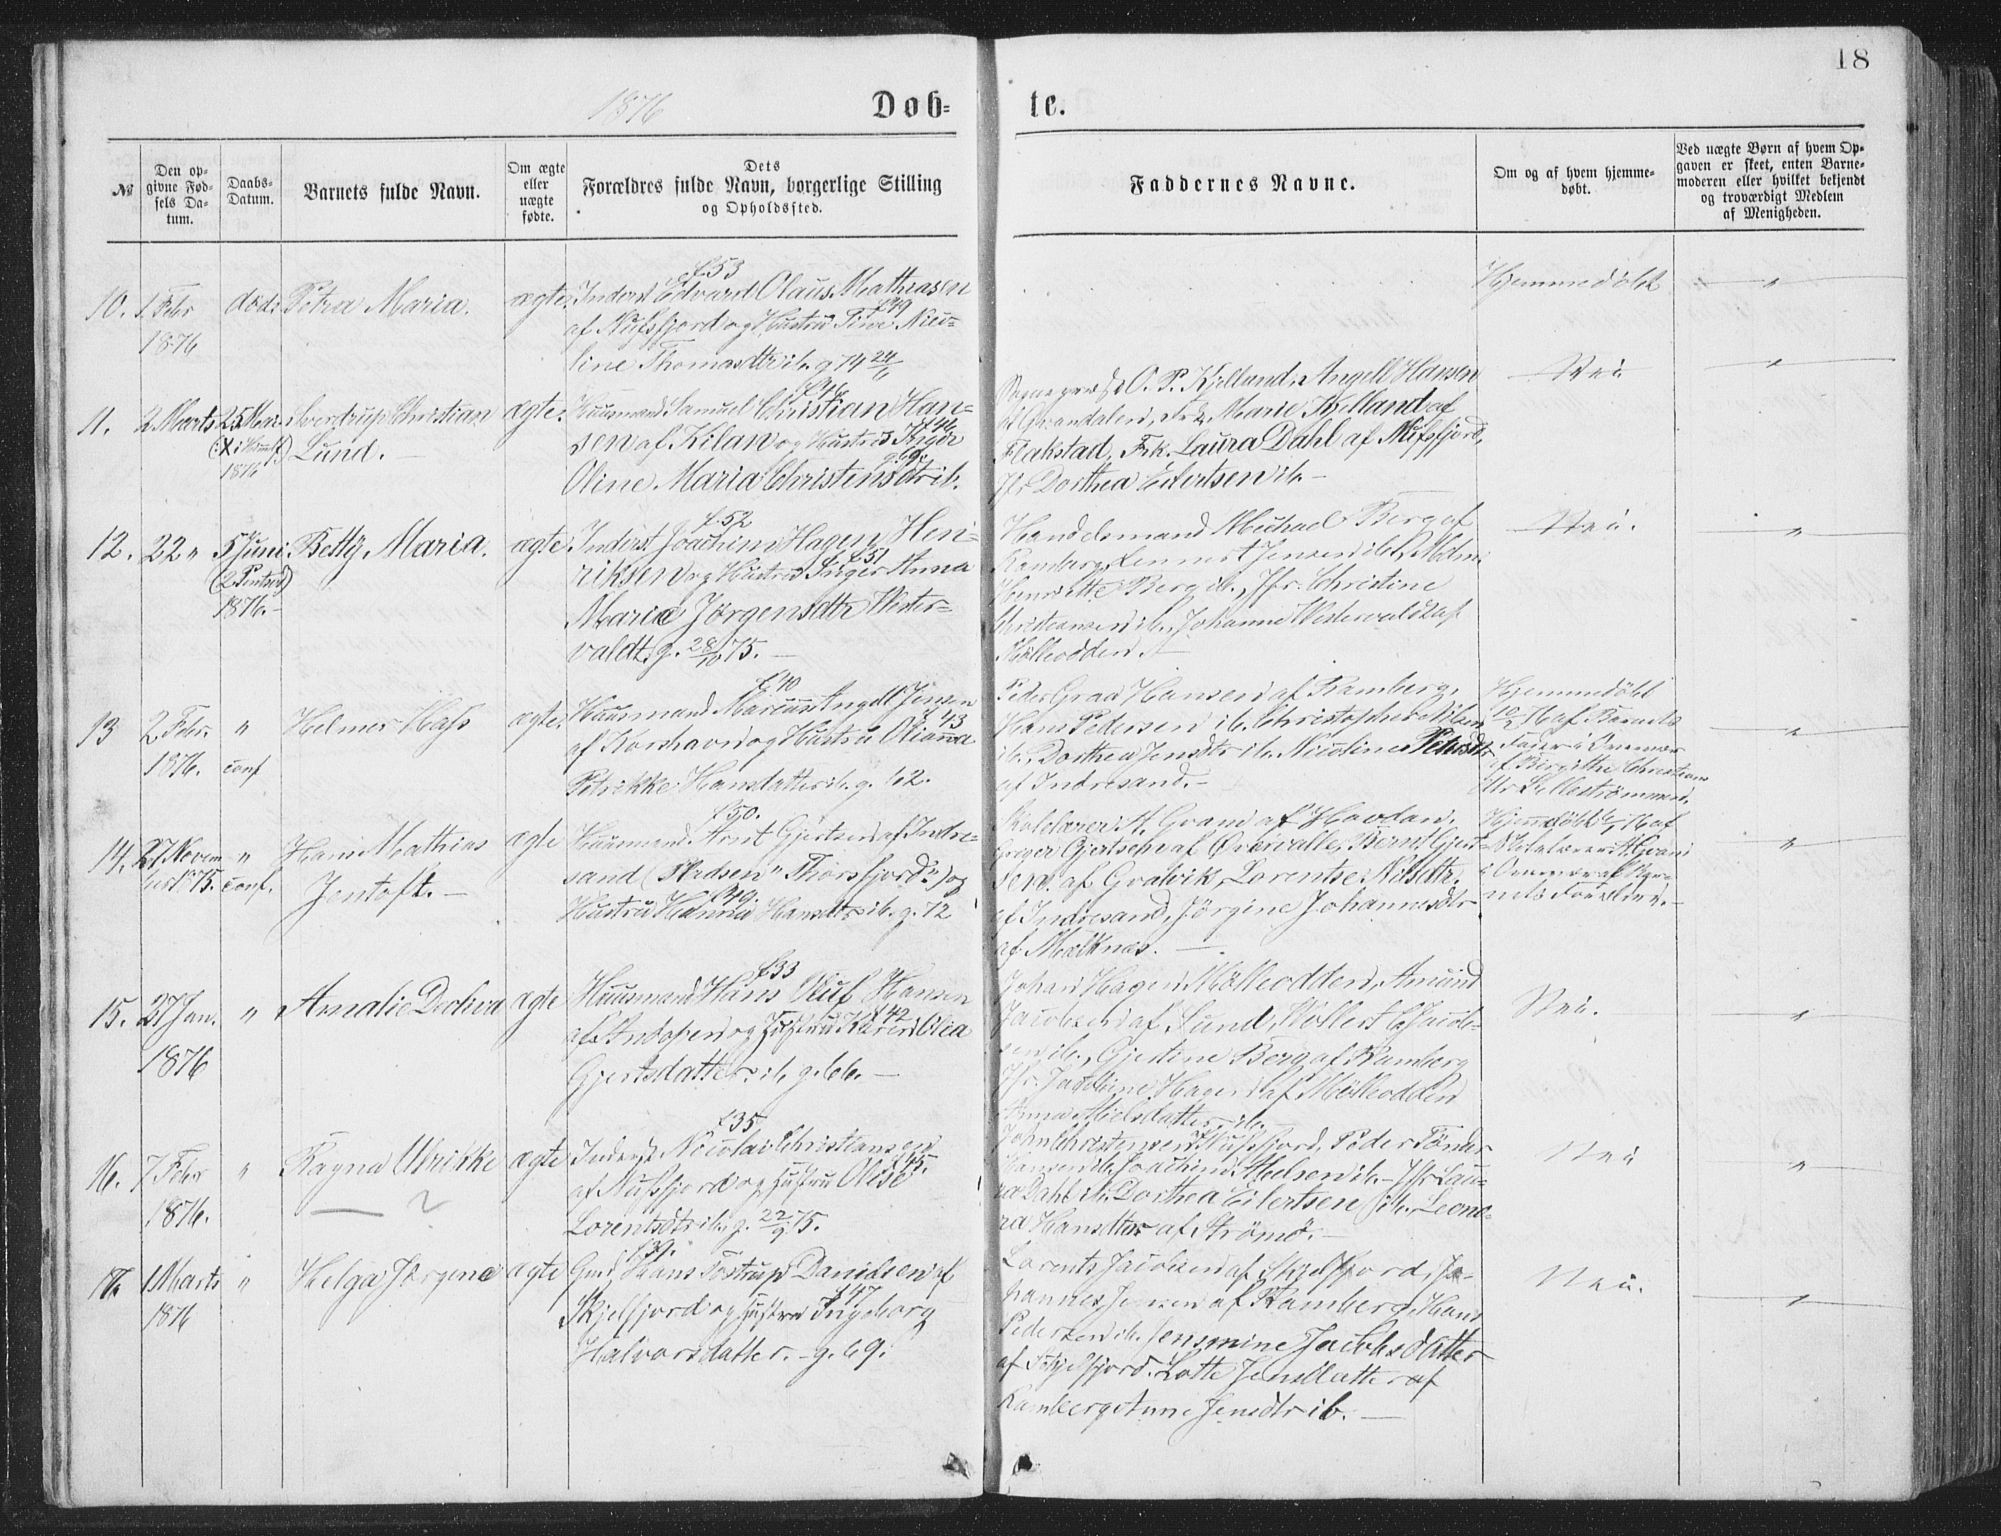 18
1876
Døb-
te.
№
Den op-
givne Fød-
sels Da-
tum.
Daabs-
Datum.
Barnets fulde Navn.
Om ægte
eller
uægte
fødte.
Dets
Forældres fulde Navn, borgerlige Stilling
og Opholdssted.
Faddernes Navne.
Om og af hvem hjemme-
døbt.
Ved uægte Børn af hvem Op-
gaven er skeet, enten Barne-
moderen eller hvilket bekjendt
og troværdigt Medlem
af Menigheden.
10.
1. Febr
1876
død:
Petra Maria.
ægte.
f. 53
Inderst Edvard Olaus Mathiasen
f. 49
af Nufsfjord og Hustru
line Thomasdtr ib. g 74 24/6
Hjemmedöbt
"
11.
2 Marts
25 Mai
1876
Sverdrup Christian
Lund. —
ægte.
f. 46
Huusmand Samuel Christian Han-
f. 46
sen af Kilan og Hustru Inger
g. 69.
Oline Maria Christensdtr ib.
O. P. Kjelland, Angell Hansen
Marie Kjelland af
Flakstad, Frk. Laura Dahl af Nufsfjord,
Jfr Dorthea Eilertsen ib. —
Nei
"
12.
22 "
5 Juni
1876. —
Betty Maria.
ægte
f. 52
Inderst Joachim Hagen Hen-
f. 51
riksen og Hustru Inger Anna
Maria Jörgensdtr Wester-
valdt, g. 28/10 75. —
Handelsmand Michael Berg af
Ramberg, Jensen ib., Mdm
Henriette Berg ib., Jfr. Christine
Christiansen ib., Johanne Westervaldt af
Mölleodden.
Nei.
"
13
2 Febr.
1876.
"
conf
Helmer Hafs
ægte.
f. 40
Huusmand Marcus Angell Jensen
f. 43
af Korshavn og Hustru Olianna
Petrikke Hansdatter ib. g. 62.
Peder Grad Hansen af Ramberg,
Hans Pedersen ib. Christopher Nilsen
ib., Dorthea Jensdtr ib. Nicoline Petersdtr
af Indresand. —
Hjemmedöbt
10/2 76 af Barnets
Fader i Overvær
af Birgithe Christians
dtr
"
14.
27 Novem
ber 75.
"
conf.
Hans Mathias
Jentoft. —
ægte
f. 50.
Huusmand Arnt Gjertsen af Indre-
sand ( "Thorsfjord") og
f. 49.
Hustru Hanna Hansdtr ib. g. 72
Skolelærer A. Grani af Havdan,
Greger Gjertsen af Overvalle, Bernt Gjert-
sen. af Gravik, Lorentse Nilsdtr.
af Indresand, Jörgine Johannesdtr
af Mælknæs. —
Hjemdöbt 76 af
Skolelærer Grani
i Overvær af Bar-
nets Forældre. —
"
15.
27 Jan.
1876
"
Amalie Dortea
ægte
f. 33
Huusmand Hans Oluf Hansen
f. 42
af Andopen og Hustru Karen Olea
Gjertsdatter ib g. 66. —
Johan Hagen Mölleodden, Amund
Jacobsen af Sund, Wollert Jacob-
sen ib., Gjertine Berg af Ramberg
Jfr. Jakobine Hagen af Mölleodden
Anna Nielsdatter ib. —
Nei.
"
16.
7 Febr
1876.
"
Ragna Ulrikke
— ~
ægte
f. 35
Inderst Nicolai Christiansen
f. 45.
af Nufsfjord og Hustru Olise
Lorentsdtr ib., g. 22/9 75.
John Christensen Nufsfjord, Peder Tönder
Hansen ib. Joachim Nielsen ib. — Jfr Lau-
ra Dahl ib. Dorthea Eilertsen ib., Leono-
ra Hansdtr af Strömö. —
Nei
"
17.
1 Marts
1876
"
Helga Jørgine
ægte
f. 39.
Gmd. Hans Tostrup Danielsen af
f. 47
Skjelfjord og Hustru Ingeborg
Halvorsdatter. — g. 69.
Lorents Jacobsen af Skjelfjord, Jo-
hannes Jensen af Ramberg, Hans
Pedersen ib. Jensmine Jacobsdatter
af Skjelfjord. Lotte Jensdatter af
Ramberg, Anne Jensdtr ib. —
Nei.
"